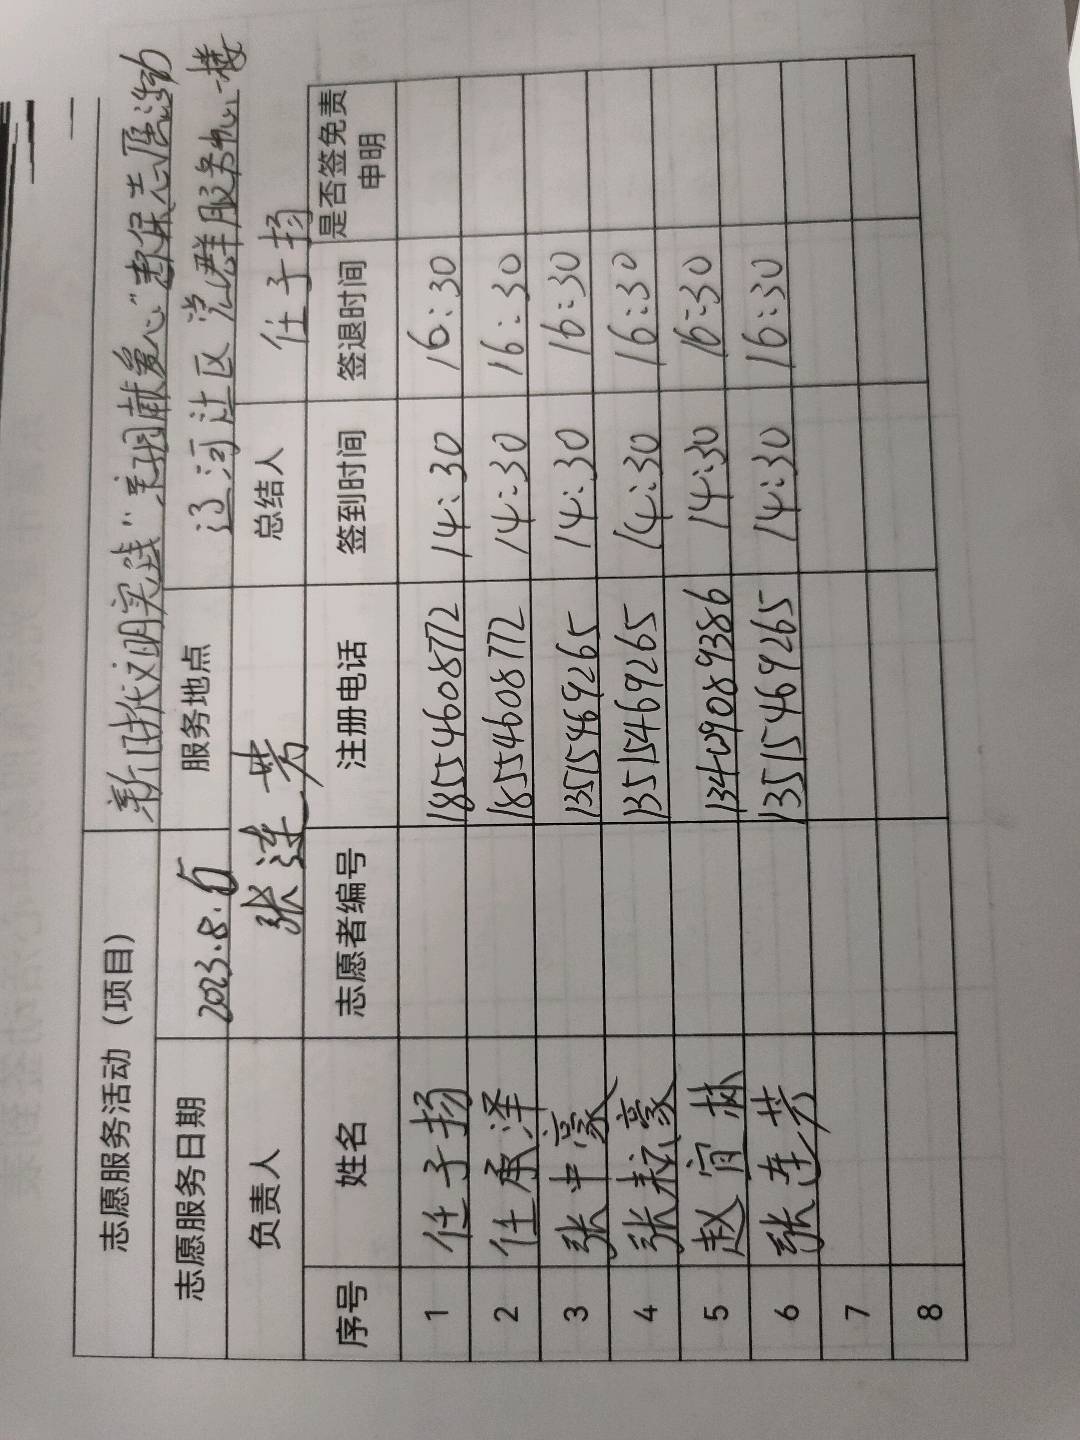 志愿服务活动（项目） 新时代文明实践"关朋献爱心"教保志愿活动
志愿服务日期 2023.8.5 服务地点 辽河社区党群服务中心一楼
负责人 张连芳 总结人 任子扬
序号 姓名 志愿者编号 注册电话 签到时间 签退时间 是否签免责申明
1 任子扬 18554608772 14:30 16:30
2 任承泽 18554608772 14:30 16:30
3 张中豪 13515469265 14:30 16:30
4 张耘豪 13515469265 14:30 16:30
5 赵宜林 13409089386 14:30 16:30
6 张连芳 13515469265 14:30 16:30
7
8